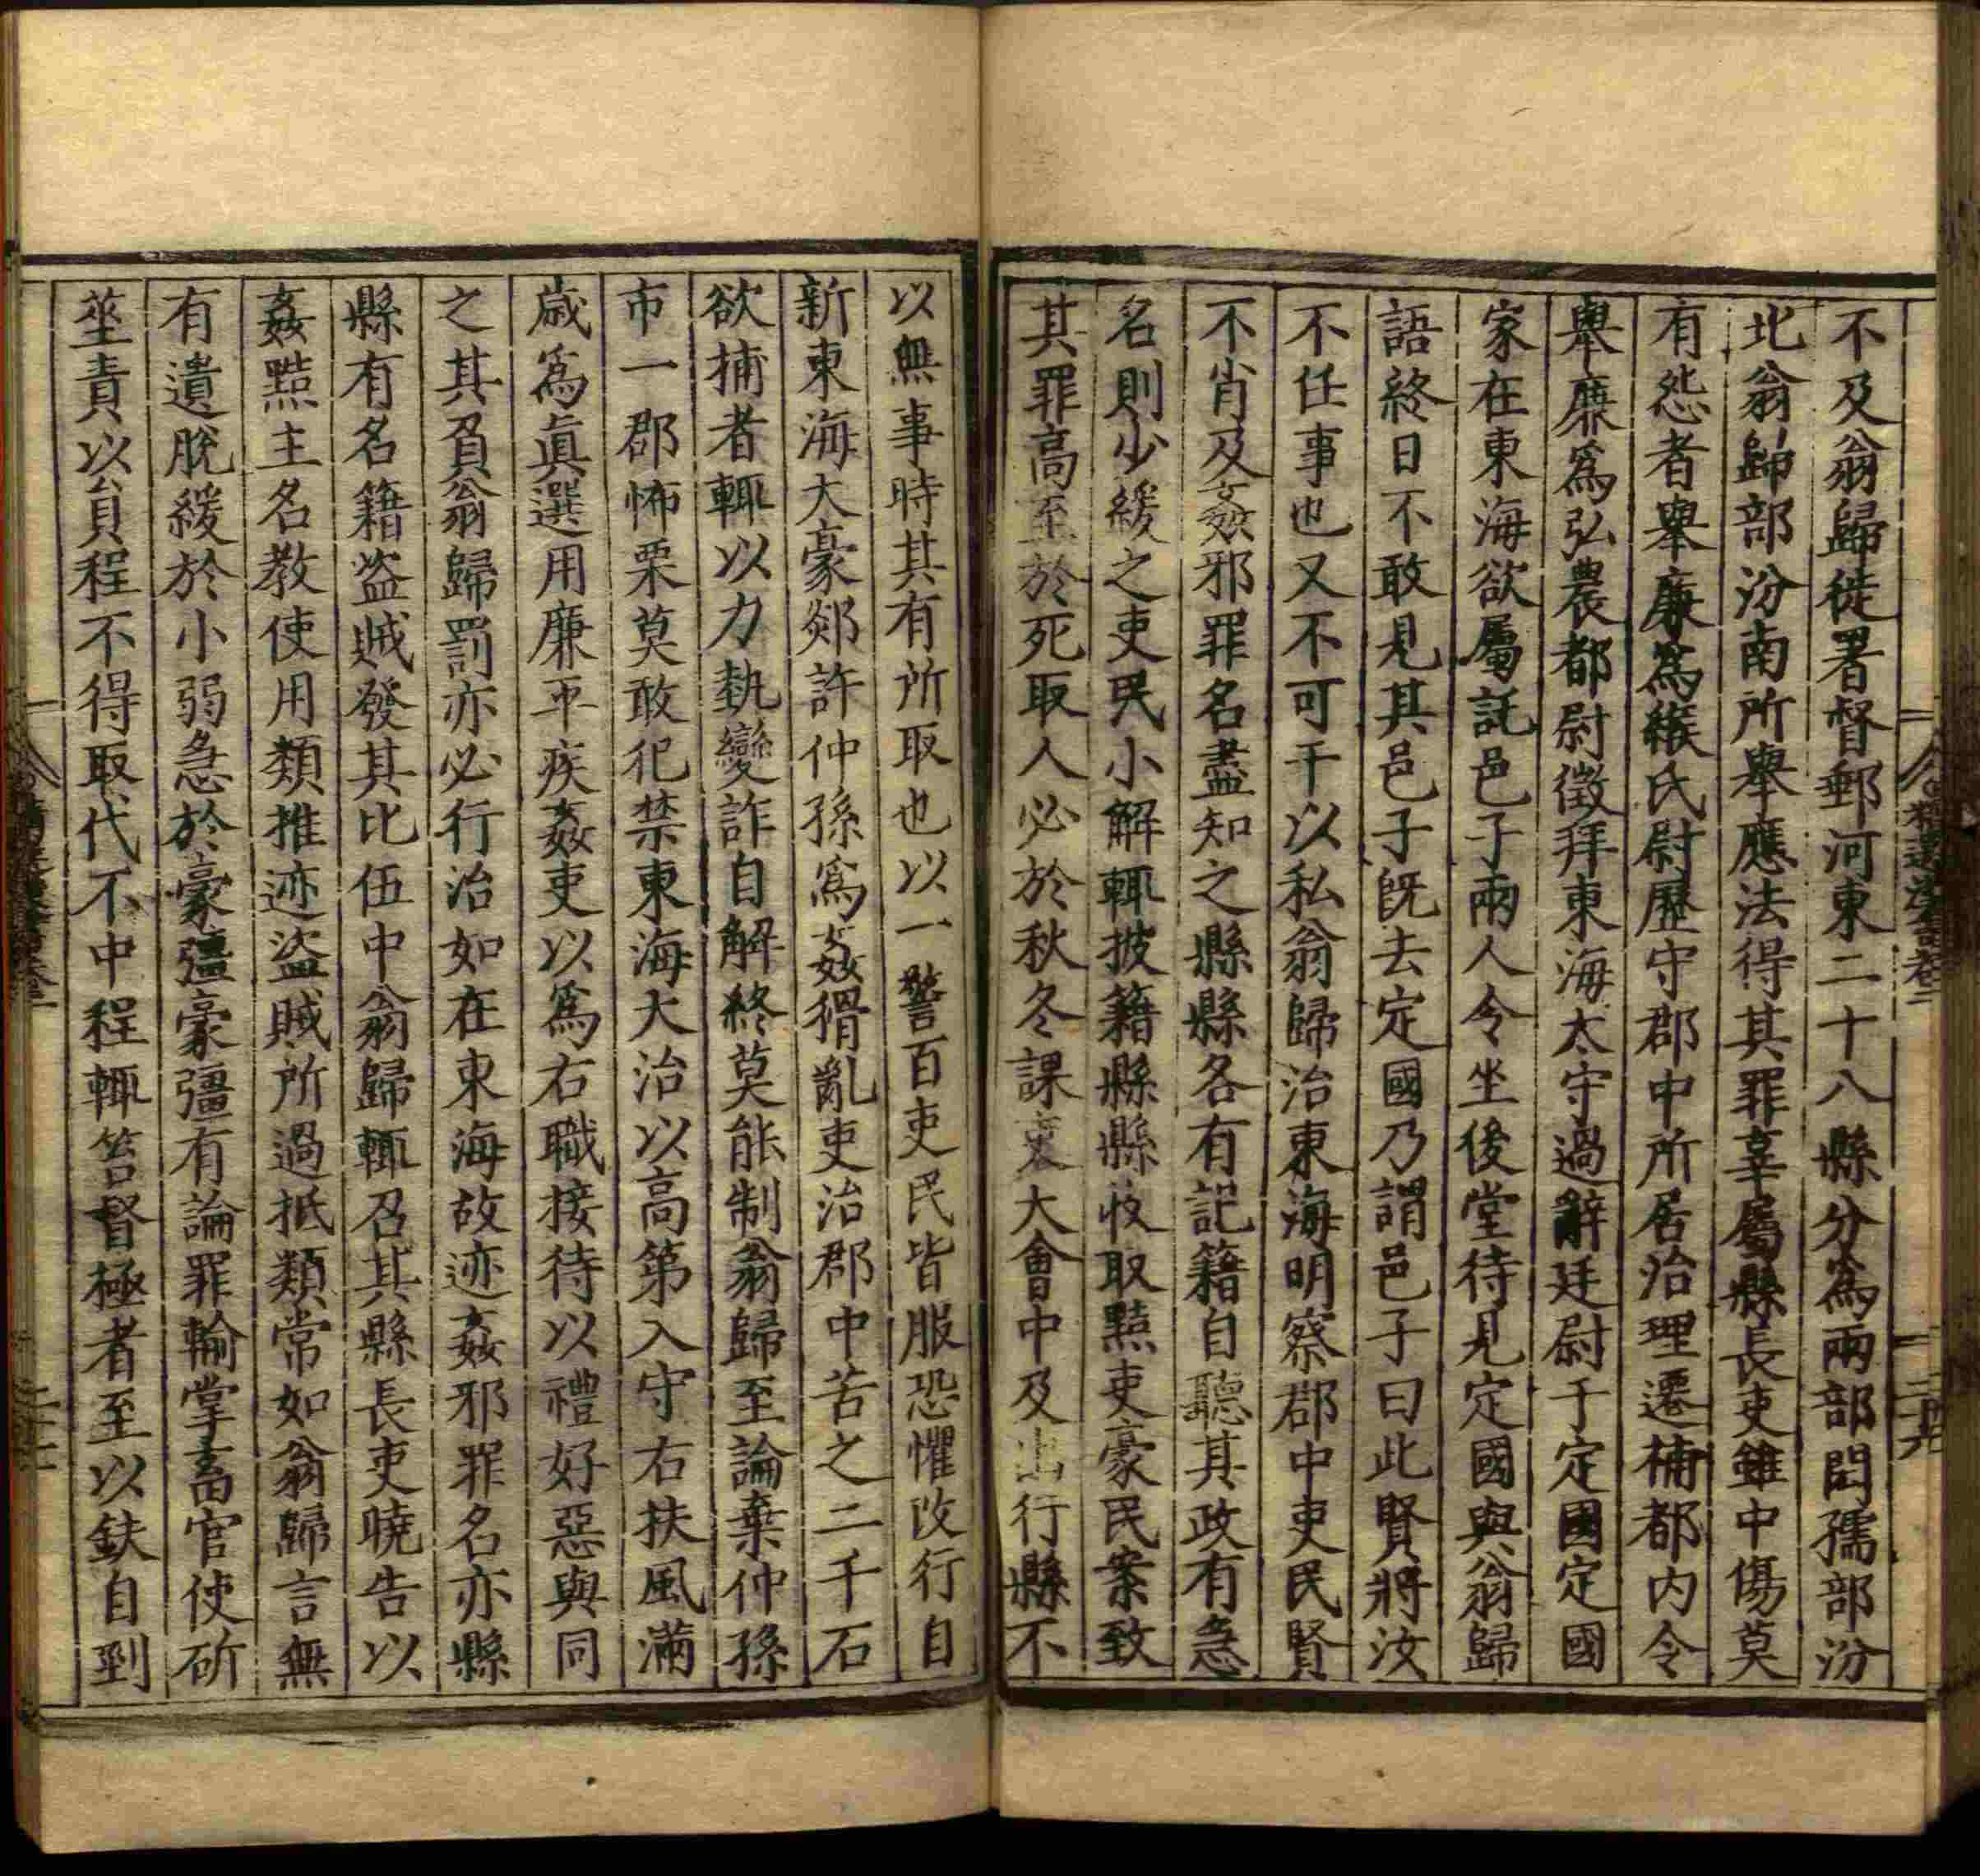 不及翁歸徙署督郵河東二十八縣分爲兩部閎孺部汾
北翁歸部汾南所舉應法得其罪辜屬縣長吏雖中傷莫
有怨者舉廉爲緱氏尉歷守郡中所居治理遷補都内令
舉廉爲弘農都尉徵拜東海太守過辭廷尉于定國定國
家在東海欲屬託邑子兩人令坐後堂待見定國與翁歸
語終日不敢見其邑子旣去定國乃謂邑子曰此賢將汝
不任事也又不可干以私翁歸治東海明察郡中吏民賢
不肖及姦邪罪名盡知之縣縣各有記籍自聽其政有急
名則少緩之吏民小解輒披籍縣縣收取黠吏豪民案致
其罪高至於死取人必於秋冬課吏大會中及出行縣不
以無事時其有所取也以一警百吏民皆服恐懼改行自
新東海大豪郯許仲孫爲姦猾亂吏治郡中苦之二千石
欲捕者輒以力埶變詐自解終莫能制翁歸至論棄仲孫
市一郡怖栗莫敢犯禁東海大治以高第入守右扶風滿
歲爲眞選用廉平疾姦吏以爲右職接待以禮好惡與同
之其負翁歸罰亦必行治如在東海故迹姦邪罪名亦縣
縣有名籍盜賊發其比伍中翁歸輒召其縣長吏曉告以
姦黠主名教使用類推迹盜賊所過抵類常如翁歸言無
有遺脫緩於小弱急於豪彊豪彊有論罪輸掌畜官使斫
莝責以員程不得取代不中程輒笞督極者至以鈇自剄